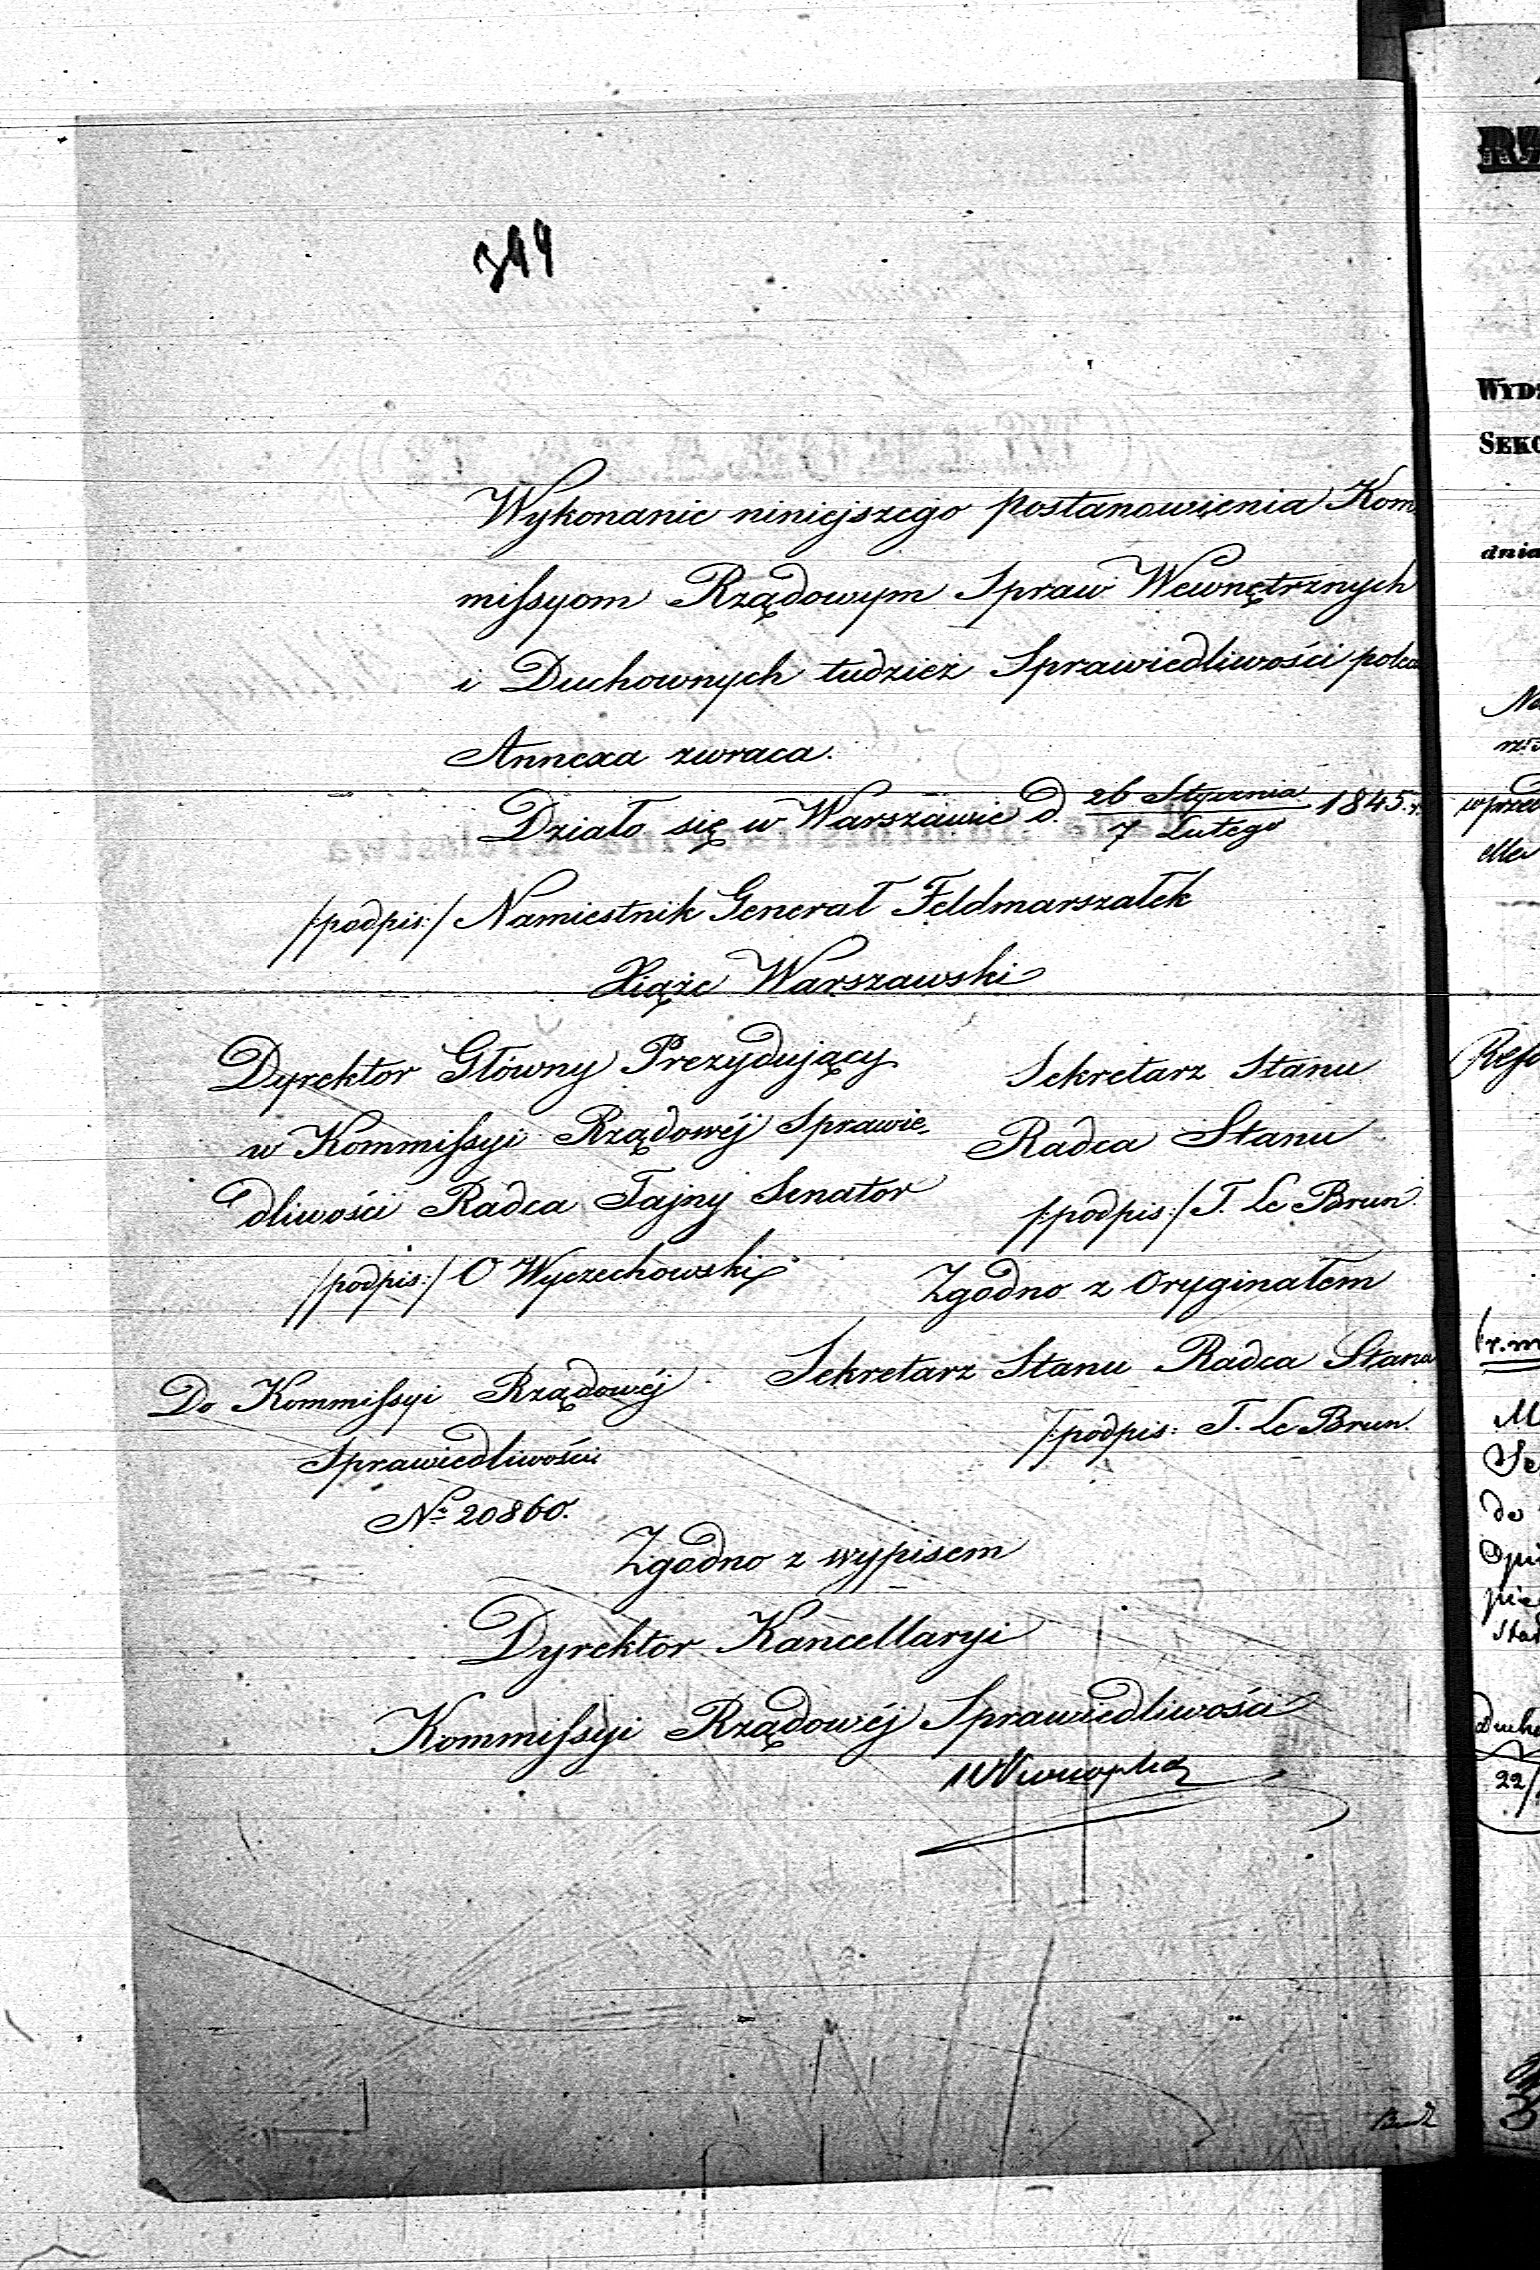 399
Wykonanie niniejszego postanowienia Kom
missyom Rządowym Spraw Wewnętrznych
i Duchownych tudzież Sprawiedliwości poleca
Annexa zwraca.
Działo się w Warszawie d. 26 Stycznia / 7 Lutego 1845. r.
/:podpis:/ Namiestnik Generał Feldmarszałek
Xiąże Warszawski
Dyrektor Główny Prezydujący
w Kommissyi Rządowéj Sprawie-
dliwości Radca Tajny Senator
/:podpis:/ O Wyczechowski
Sekretarz Stanu
Radca Stanu
/:podpis:/ T. Le Brun
Zgodno z Oryginałem
Sekretarz Stanu Radca Stanu
/:podpis: T. Le Brun.
Do Kommissyi Rządowéj
Sprawiedliwości
No 20860.
Zgodno z wypisem
Dyrektor Kancellaryi
Kommissyi Rządowéj Sprawiedliwości
WYDZ
SEKC
dnia